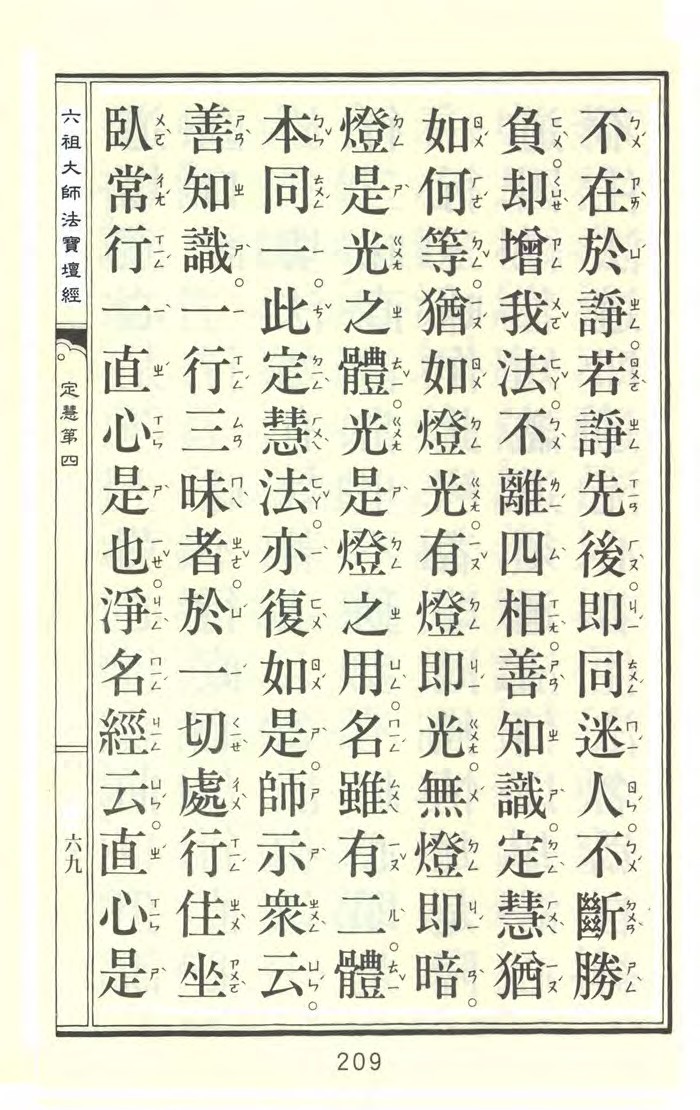 不在於諍。若諍先後。即同迷人。不斷勝
負。却增我法。不離四相。善知識。定慧猶
如何等。猶如燈光。有燈即光。無燈即暗。
燈是光之體。光是燈之用。名雖有二。體
本同一。此定慧法。亦復如是。師示眾云。
善知識。一行三昧者。於一切處行住坐
臥常行一直心是也。淨名經云。直心是
六祖大師法寶壇經
定慧第四
六九
209